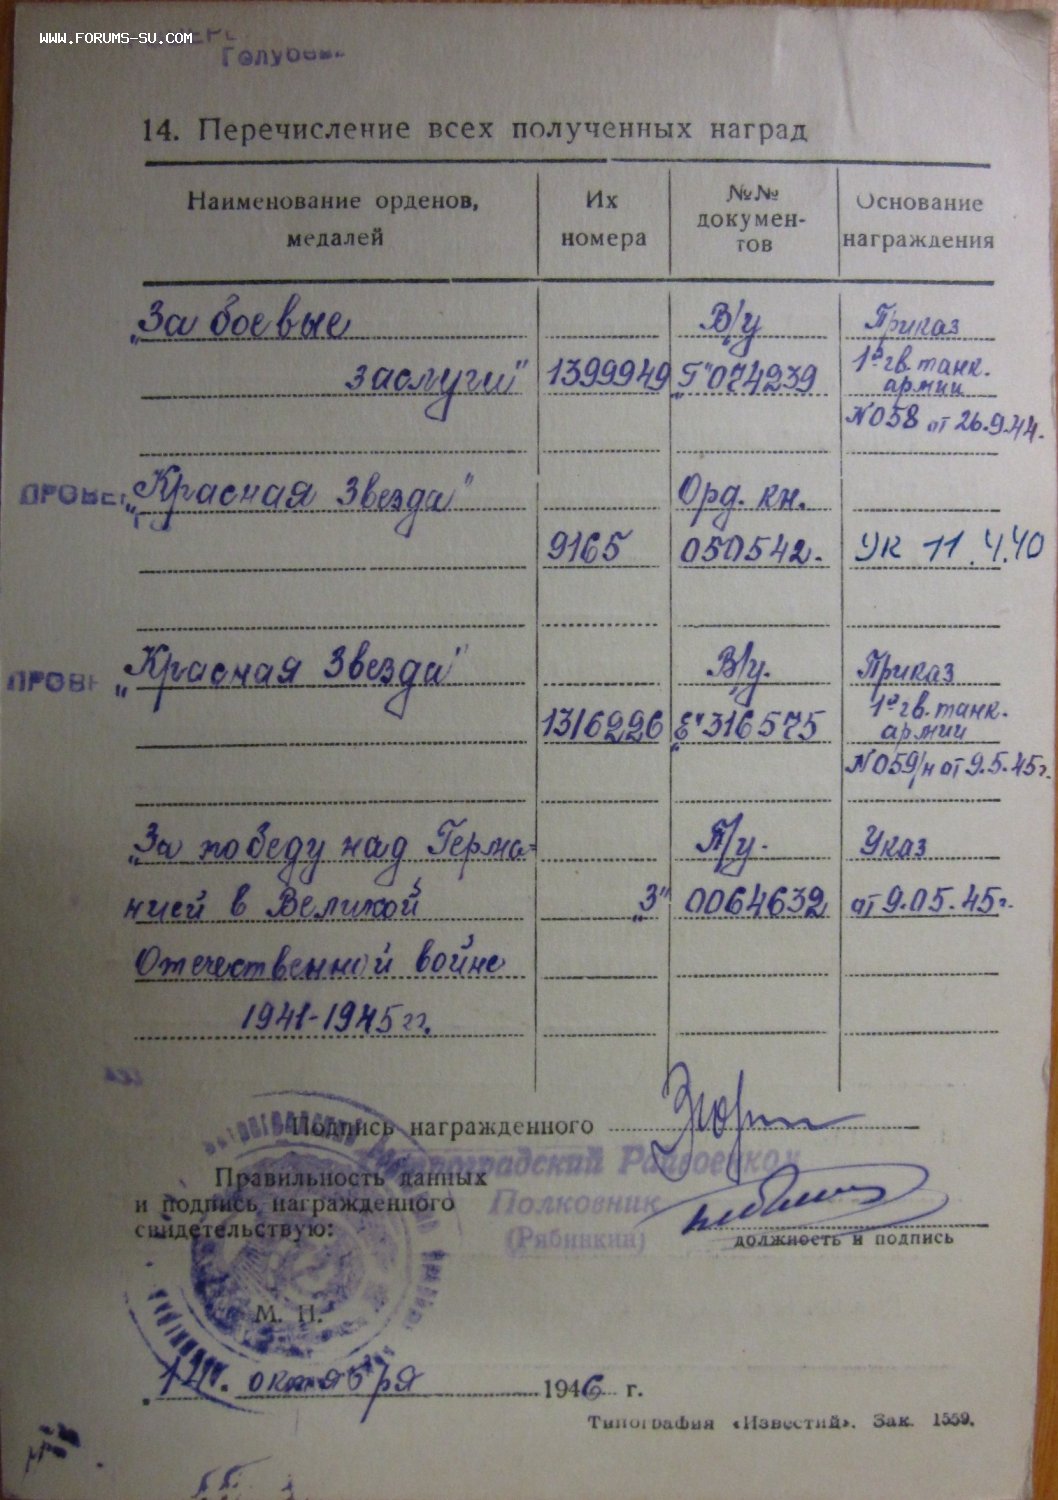 www.forums-su.com
14. Перечисление всех полученных наград
Наименование орденов, медалей
Их номера
№№ докумен-
тов
Основание награждения
„За боевые
заслуги"
1399949
В/у
„Г" 074239
Приказ
1й гв. танк.
армии
N058 от 26.9.44.
ПРОВЕ
„Красная Звезда"
9165
Орд. кн.
050542.
Ук 11.4.40
ПРОВ
„Красная Звезда"
1316226
В/у.
„Е" 316575
Приказ
1й гв. танк.
армии
N059/н от 9.5.45г.
„За победу над Герма-
нией в Великой
Отечественной войне
1941-1945 гг.
„З"
П/у.
0064632
Указ
от 9.05.45г.
Подпись награжденного
Райвоенком
Полковник
(Рябинкин)
Правильность данных
и подпись награжденного
свидетельствую:
должность и подпись
М. П.
октября 1946 г.
Типография «Известий». Зак. 1559.